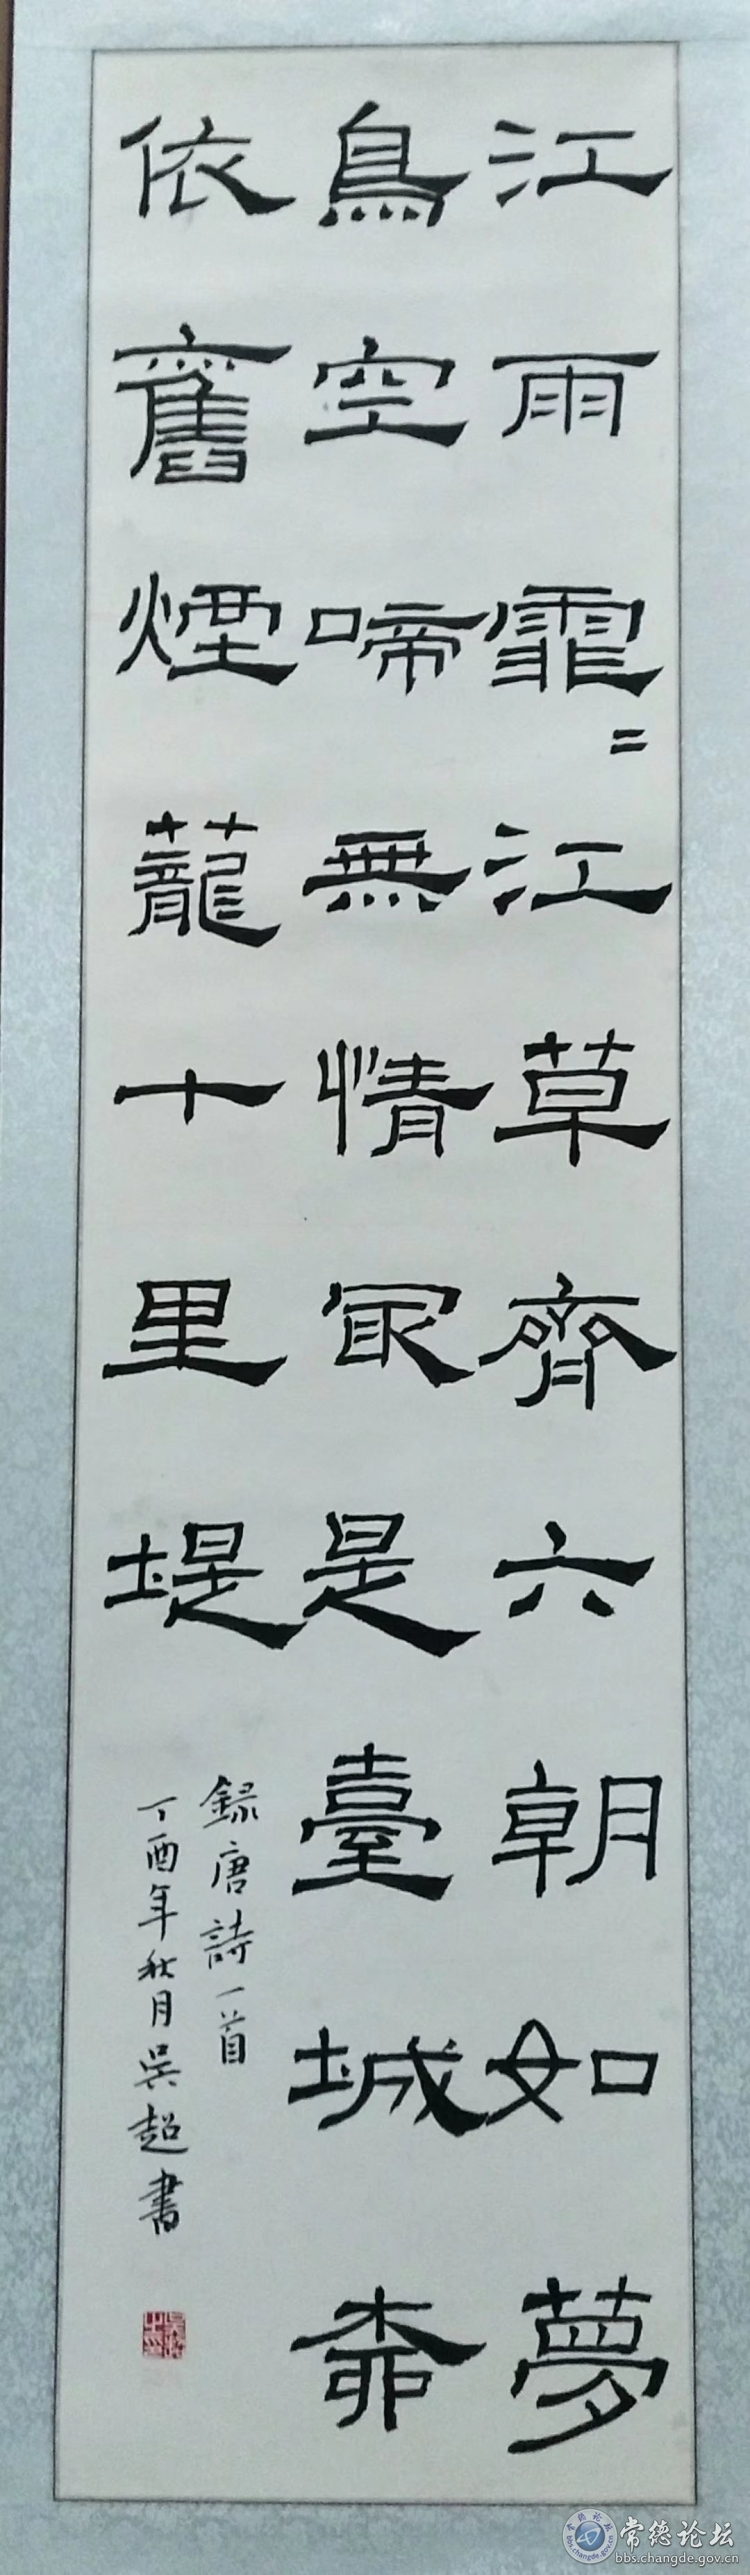 江雨霏〻江草齊六朝如夢
鳥空啼無情冣是臺城柳
依舊煙蘢十里堤
録唐詩一首
丁酉年秋月吳超書
常德论坛
bbs.changde.gov.cn